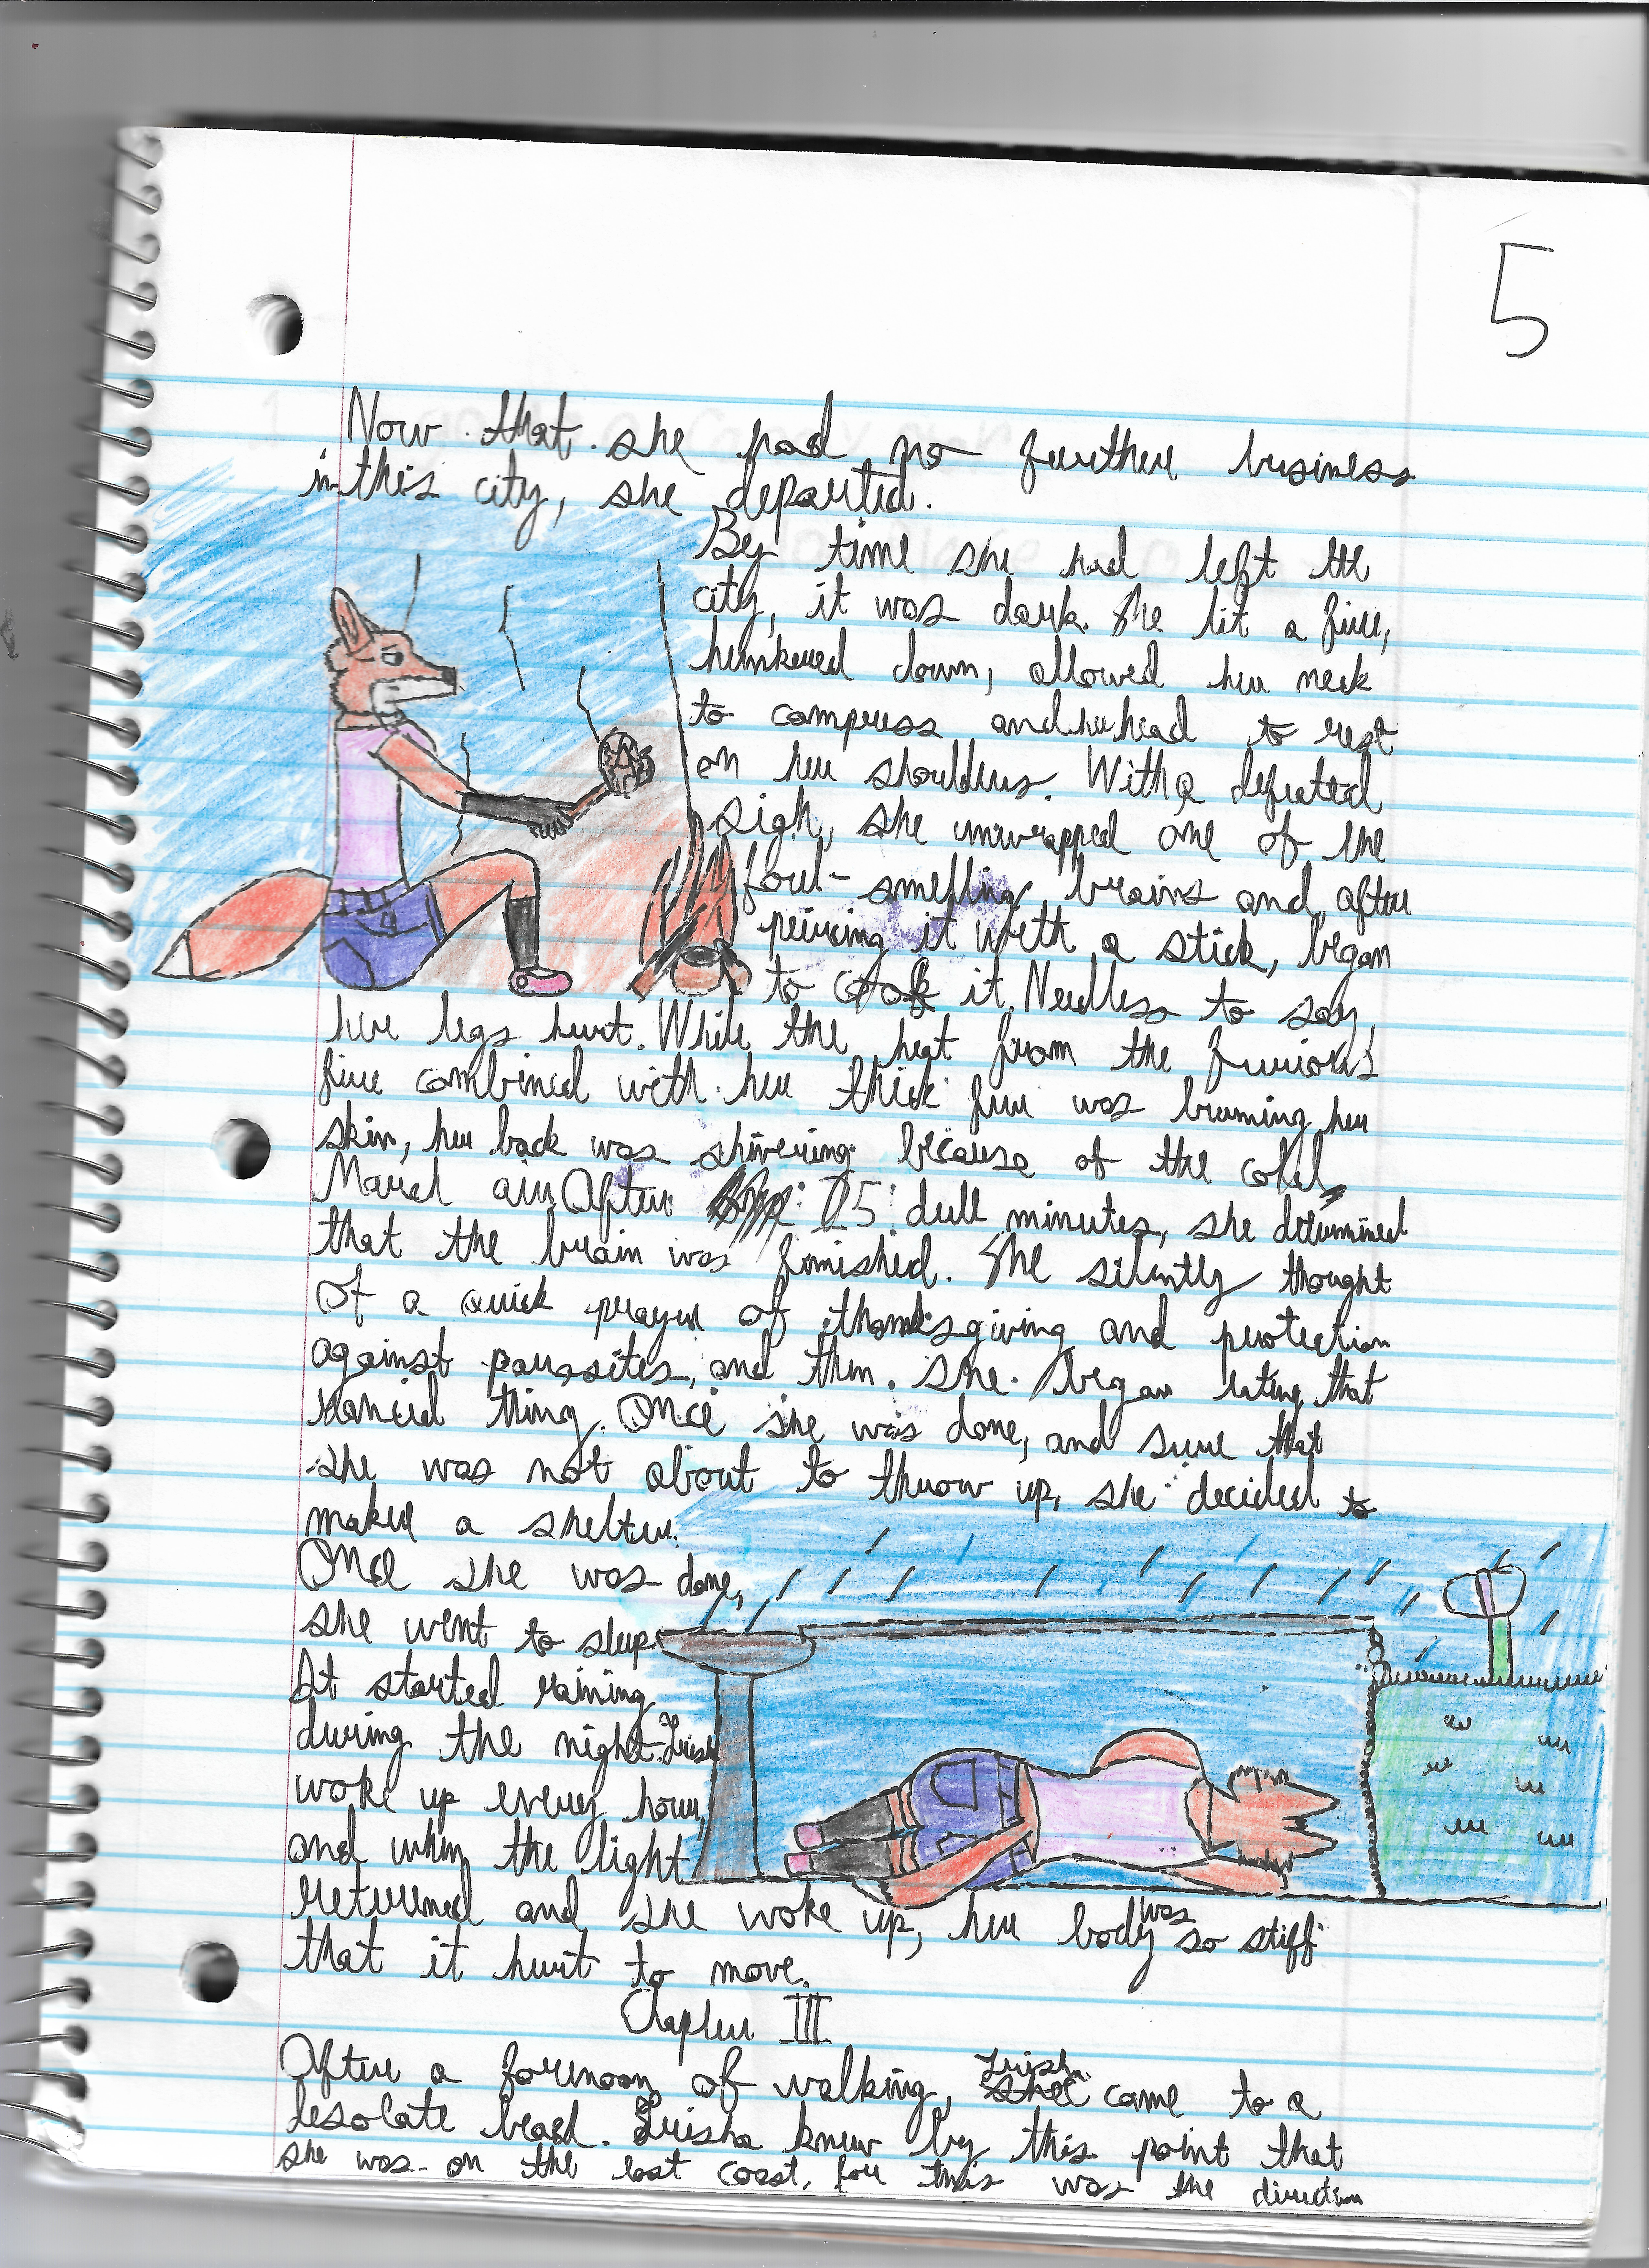 5
Now that she had no further business
in this city, she departed.
By time she had left the
city, it was dark. She lit a fire,
hunkered down, allowed her neck
to compress and her head to rest
on her shoulders. With a defeated
sigh, she unwrapped one of the
foul-smelling brains and after
peircing it with a stick, began
to cook it. Needless to say,
her legs hurt. While the heat from the furious
fire combined with her thick fur was burning her
skin, her back was shivering because of the cold,
March air. After 15 dull minutes, she determined
that the brain was finished. She silently thought
of a quick prayer of thanksgiving and protection
against parasites, and then she began eating that
rancid thing. Once she was done, and sure that
she was not about to throw up, she decided to
make a shelter.
Once she was done,
she went to sleep.
It started raining
during the night. Trish
woke up every hour,
and when the light
returned and she woke up, her body was so stiff
that it hurt to move.
Chapter III
After a forenoon of walking, Trisha came to a
desolate beach. Trisha knew by this point that
she was on the east coast, for this was the direction